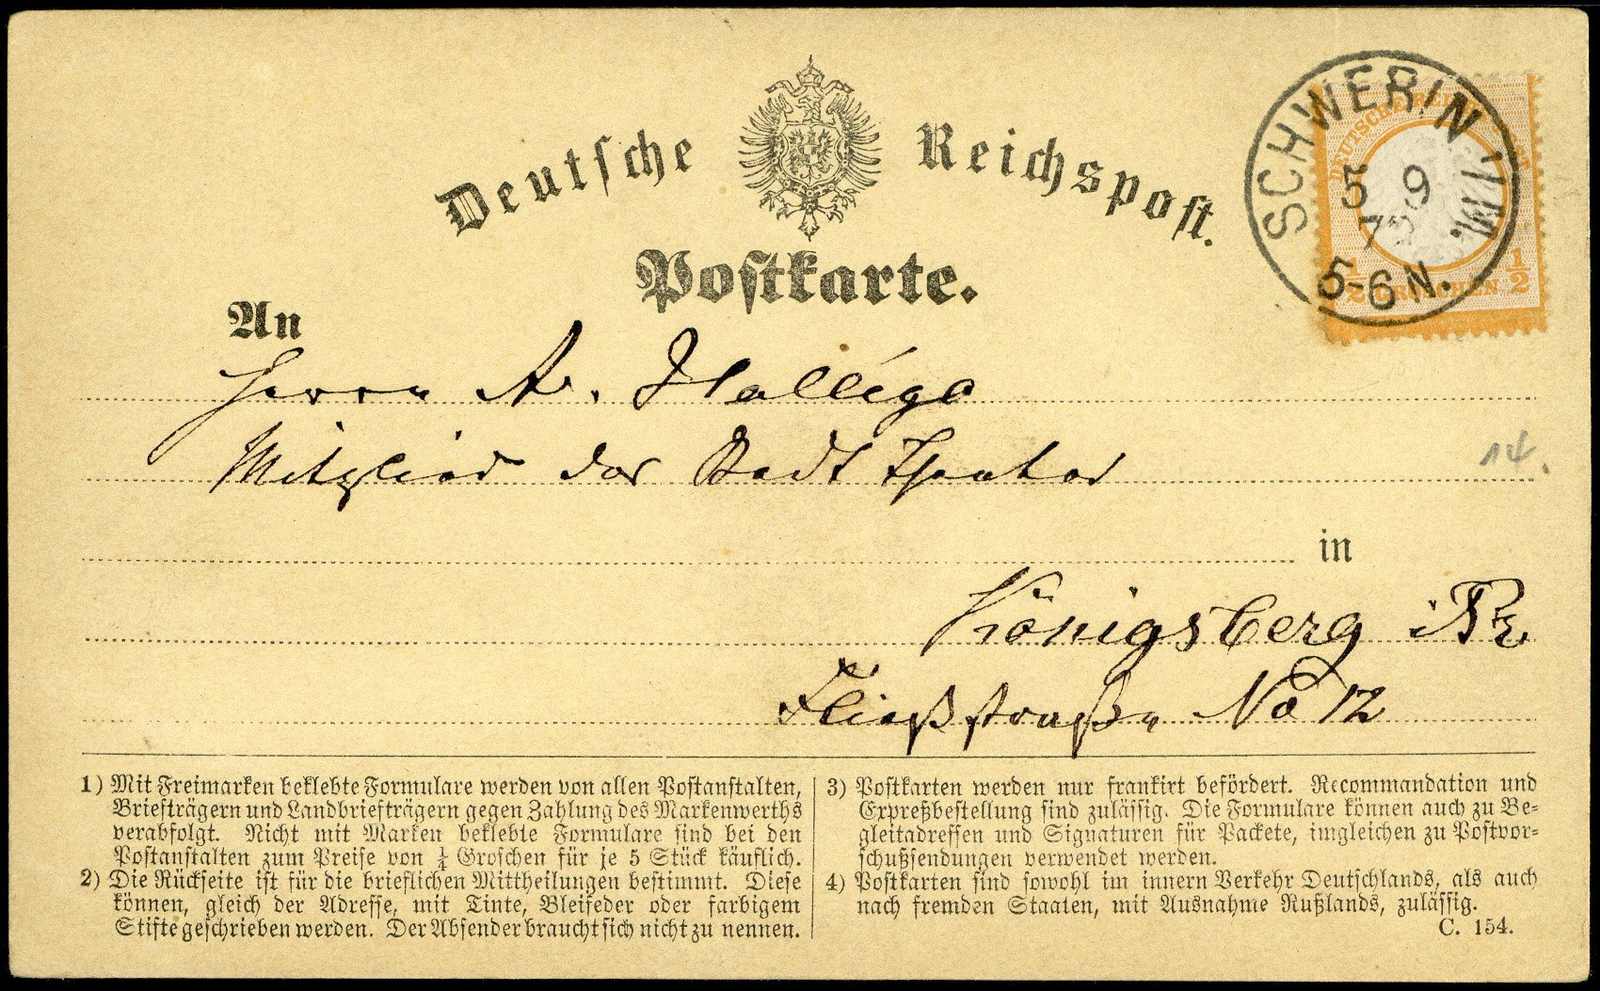 Deutsche Reichspost.
Postkarte.
SCHWERIN i/M.
5 9
5-6 N.
DEUTSCHE REICHS
1/2 GROSCHEN 1/2
An
Herrn A. Hallégo
Mitglied des Stadt Theater
in
Königsberg i/Pr
Fließstraße No 12
1) Mit Freimarken beklebte Formulare werden von allen Postanstalten,
Briefträgern und Landbriefträgern gegen Zahlung des Markenwerths
verabfolgt. Nicht mit Marken beklebte Formulare sind bei den
Postanstalten zum Preise von ¼ Groschen für je 5 Stück käuflich.
2) Die Rückseite ist für die brieflichen Mittheilungen bestimmt. Diese
können, gleich der Adresse, mit Tinte, Bleifeder oder farbigem
Stifte geschrieben werden. Der Absender braucht sich nicht zu nennen.
3) Postkarten werden nur frankirt befördert. Recommandation und
Expreßbestellung sind zulässig. Die Formulare können auch zu Be-
gleitadressen und Signaturen für Packete, imgleichen zu Postvor-
schußsendungen verwendet werden.
4) Postkarten sind sowohl im innern Verkehr Deutschlands, als auch
nach fremden Staaten, mit Ausnahme Rußlands, zulässig.
C. 154.